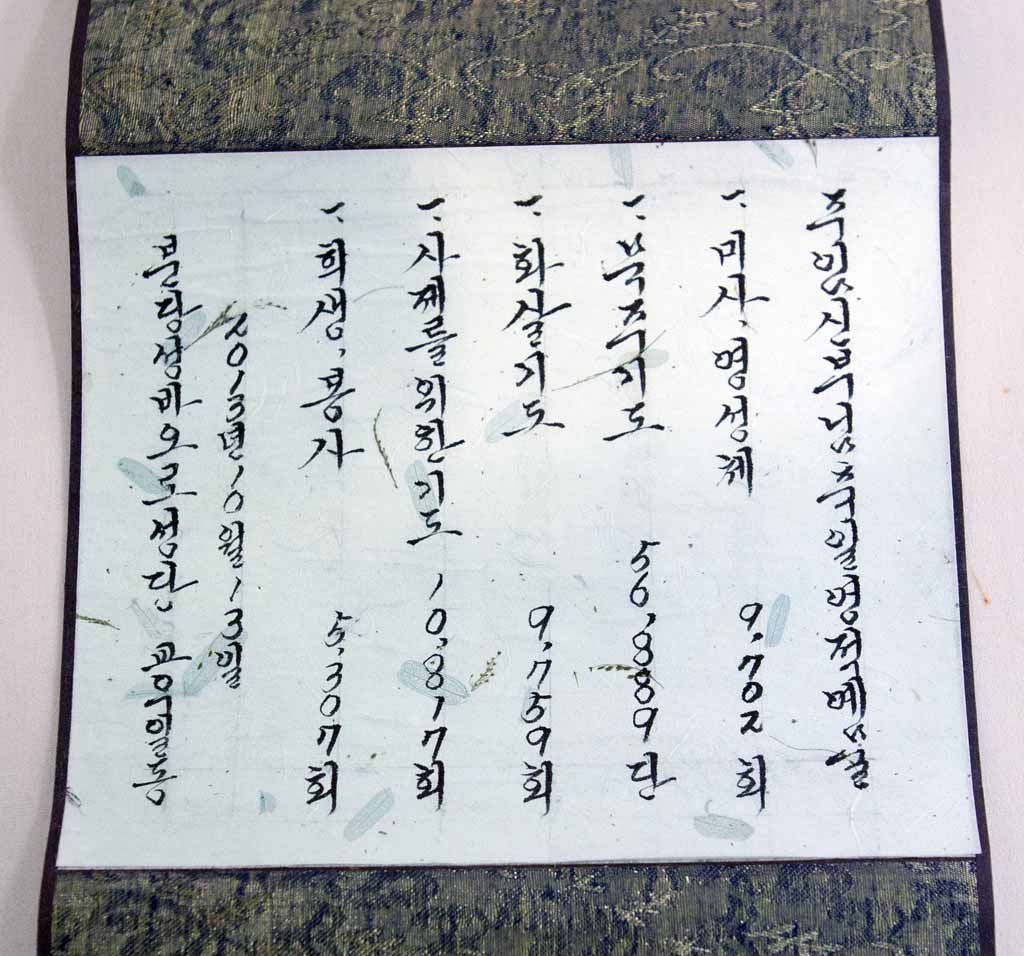 주임신부님 축일 영적예물
一. 미사, 영성체 9,702회
一. 묵주기도 56,889단
一. 화살기도 9,759회
一. 사제를 위한 기도 10,817회
一. 희생, 봉사 5,307회
2013년 10월 13일
분당성바오로성당 교우일동